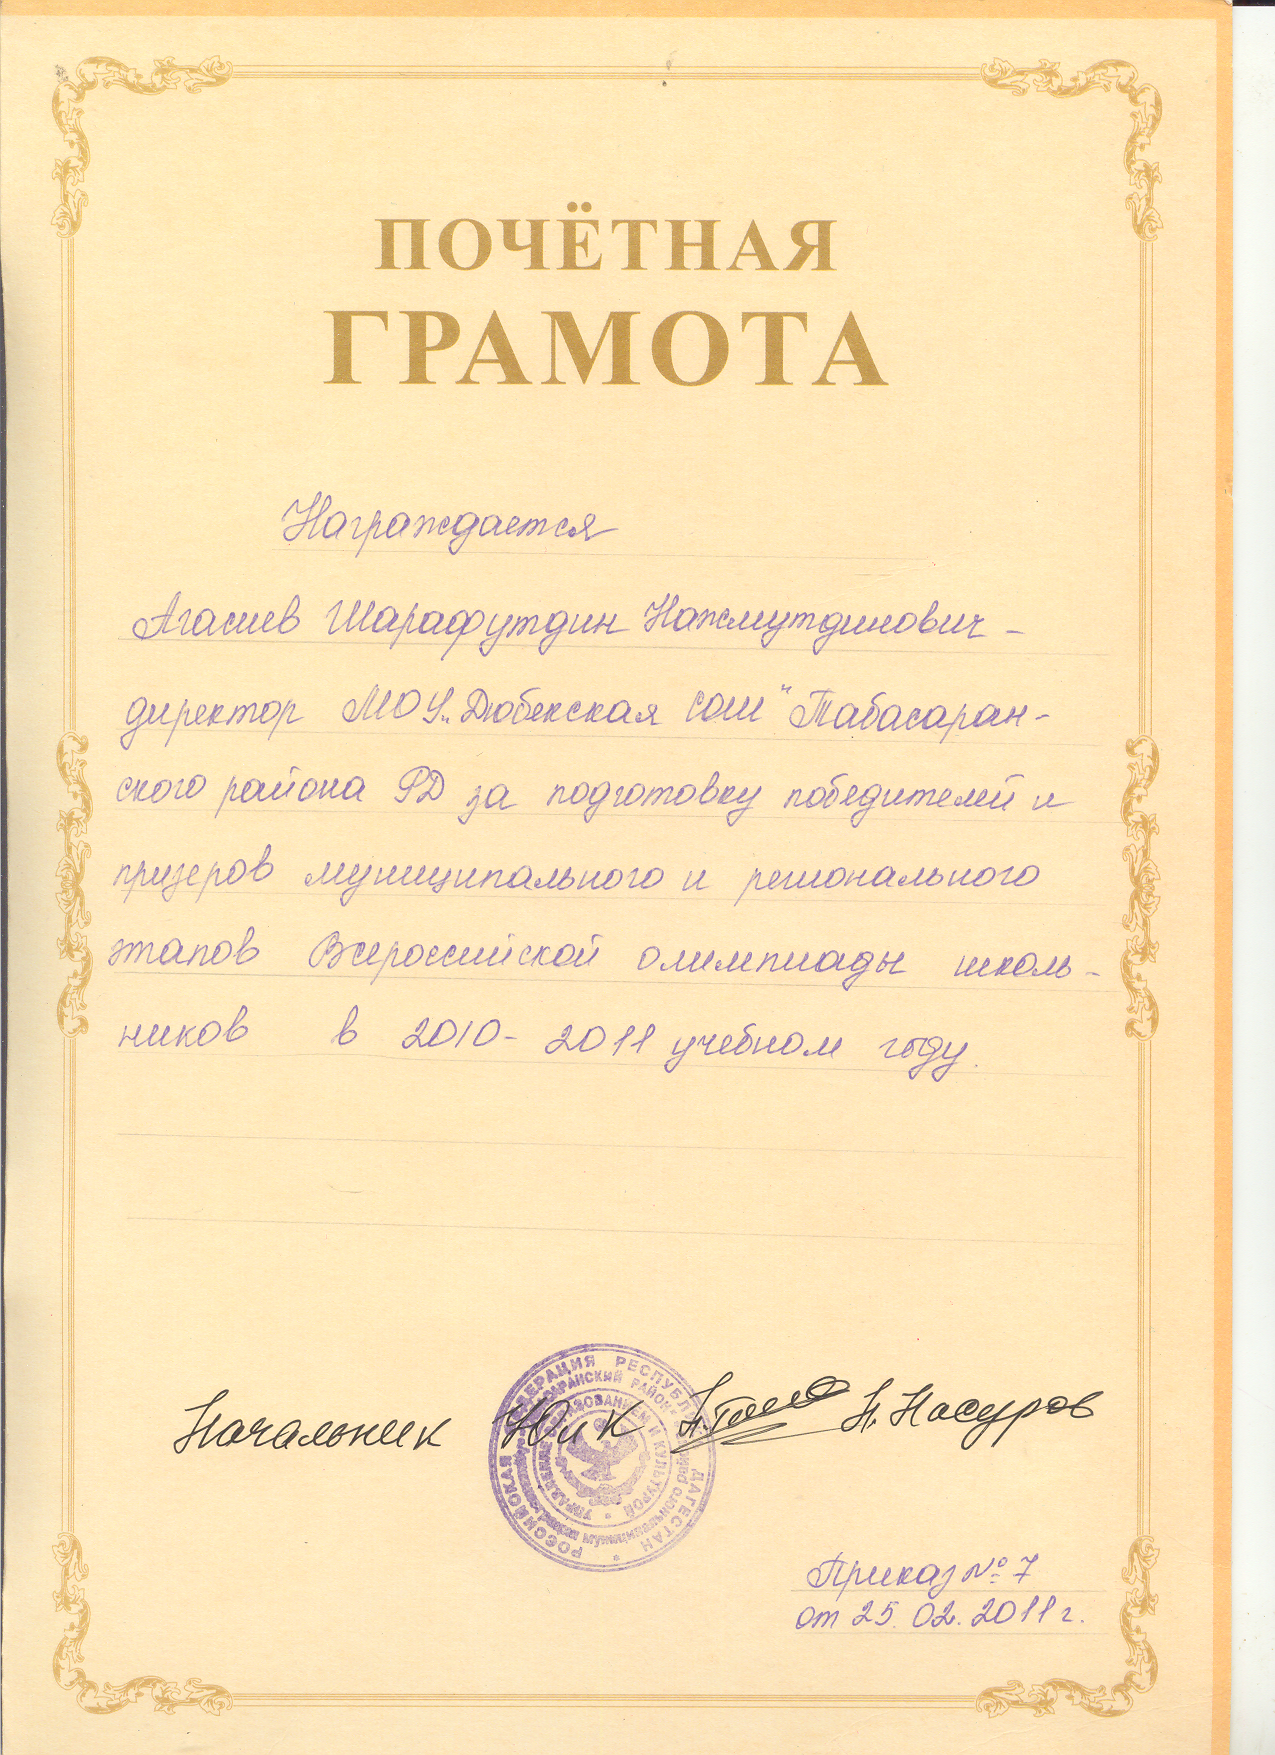 ПОЧЁТНАЯ
ГРАМОТА
Награждается
Агасиев Шарафутдин Нажмутдинович -
директор МОУ „Дюбекская СОШ" Табасаран-
ского района РД за подготовку победителей и
призеров муниципального и регионального
этапов Всероссийской олимпиады школь-
ников в 2010- 2011 учебном году.
РОССИЙСКАЯ ФЕДЕРАЦИЯ РЕСПУБЛИКА ДАГЕСТАН
УПРАВЛЕНИЕ ОБРАЗОВАНИЕМ И КУЛЬТУРОЙ
Начальник Н. Насуров
Приказ № 7
от 25.02.2011г.